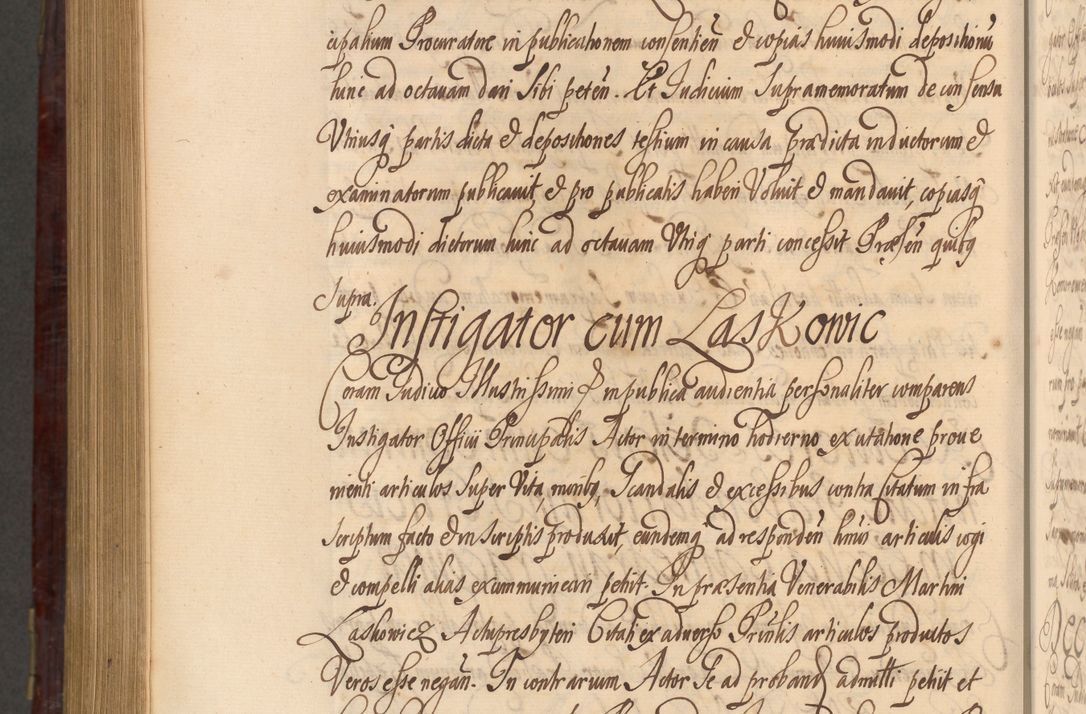 cipalium Procuratore in publicationem consentien̄ & copias huiusmodi depositionū
hinc ad octavam dari sibi peten̄. Et Iudicium Supramemoratum de consensu
Vtriusq̨ partis dicta & depositiones testium in causa prædicta inductorum &
examinatorum publicauit, & pro publicatis haberi voluit & mandauit, copiasq̨
huiusmodi dictorum hinc ad octauam Vtriq̨ parti concessit Præsen̄ quibq̨
Supra.
Instigator cum Laskowic
Coram Iudicio Illustrissimi & in publica audientia personaliter comparens
Instigator Officii Principalis Actor in termino hodierno ex citatione prove
nienti articulos super Vita, moribq̨, Scandalis & excessibus contra Citatum infra
scriptum facto & in scriptis produxit, eundemq̨ ad responden̄ hinc articulis cogi
& compelli alias excommunicari petiit. In præsentia Venerabilis Martini
Laskowicz Actupresbyteri Citati ex adverso Prin̄lis articulos productos
Veros esse negan̄. In contrarium Actor se ad proband admitti petiit et